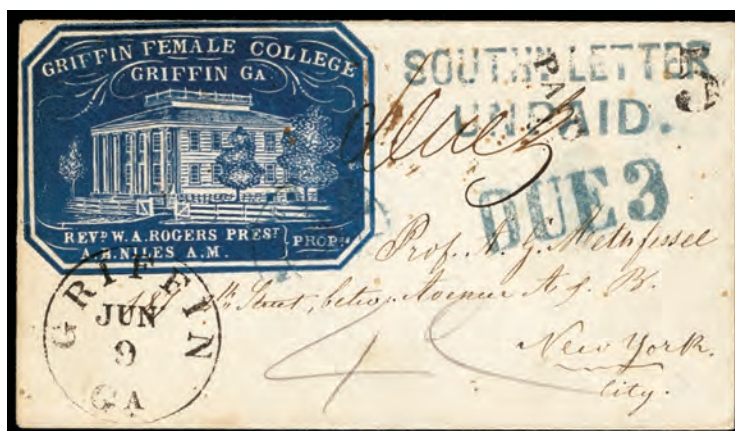 GRIFFIN FEMALE COLLEGE
GRIFFIN GA.
REVD W. A. ROGERS PREST
A. B. NILES A. M.
PROPRS
SOUTHN LETTER
UNPAID.
DUE 3
PAID
5
Due 3
GRIFFIN
JUN
9
GA
Prof. A. G. Methfessel
Street, betw. Avenue A & B.
New York.
City.